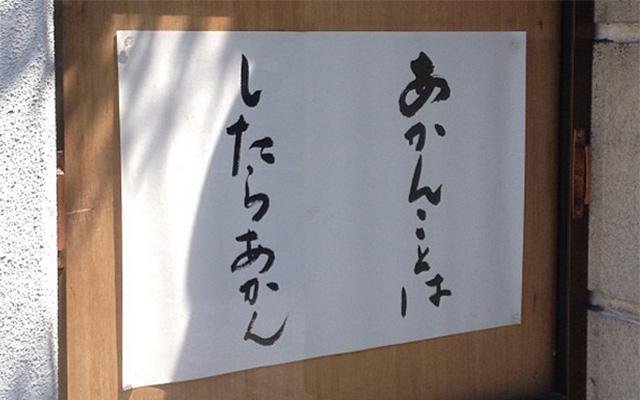 あかんことは
したらあかん